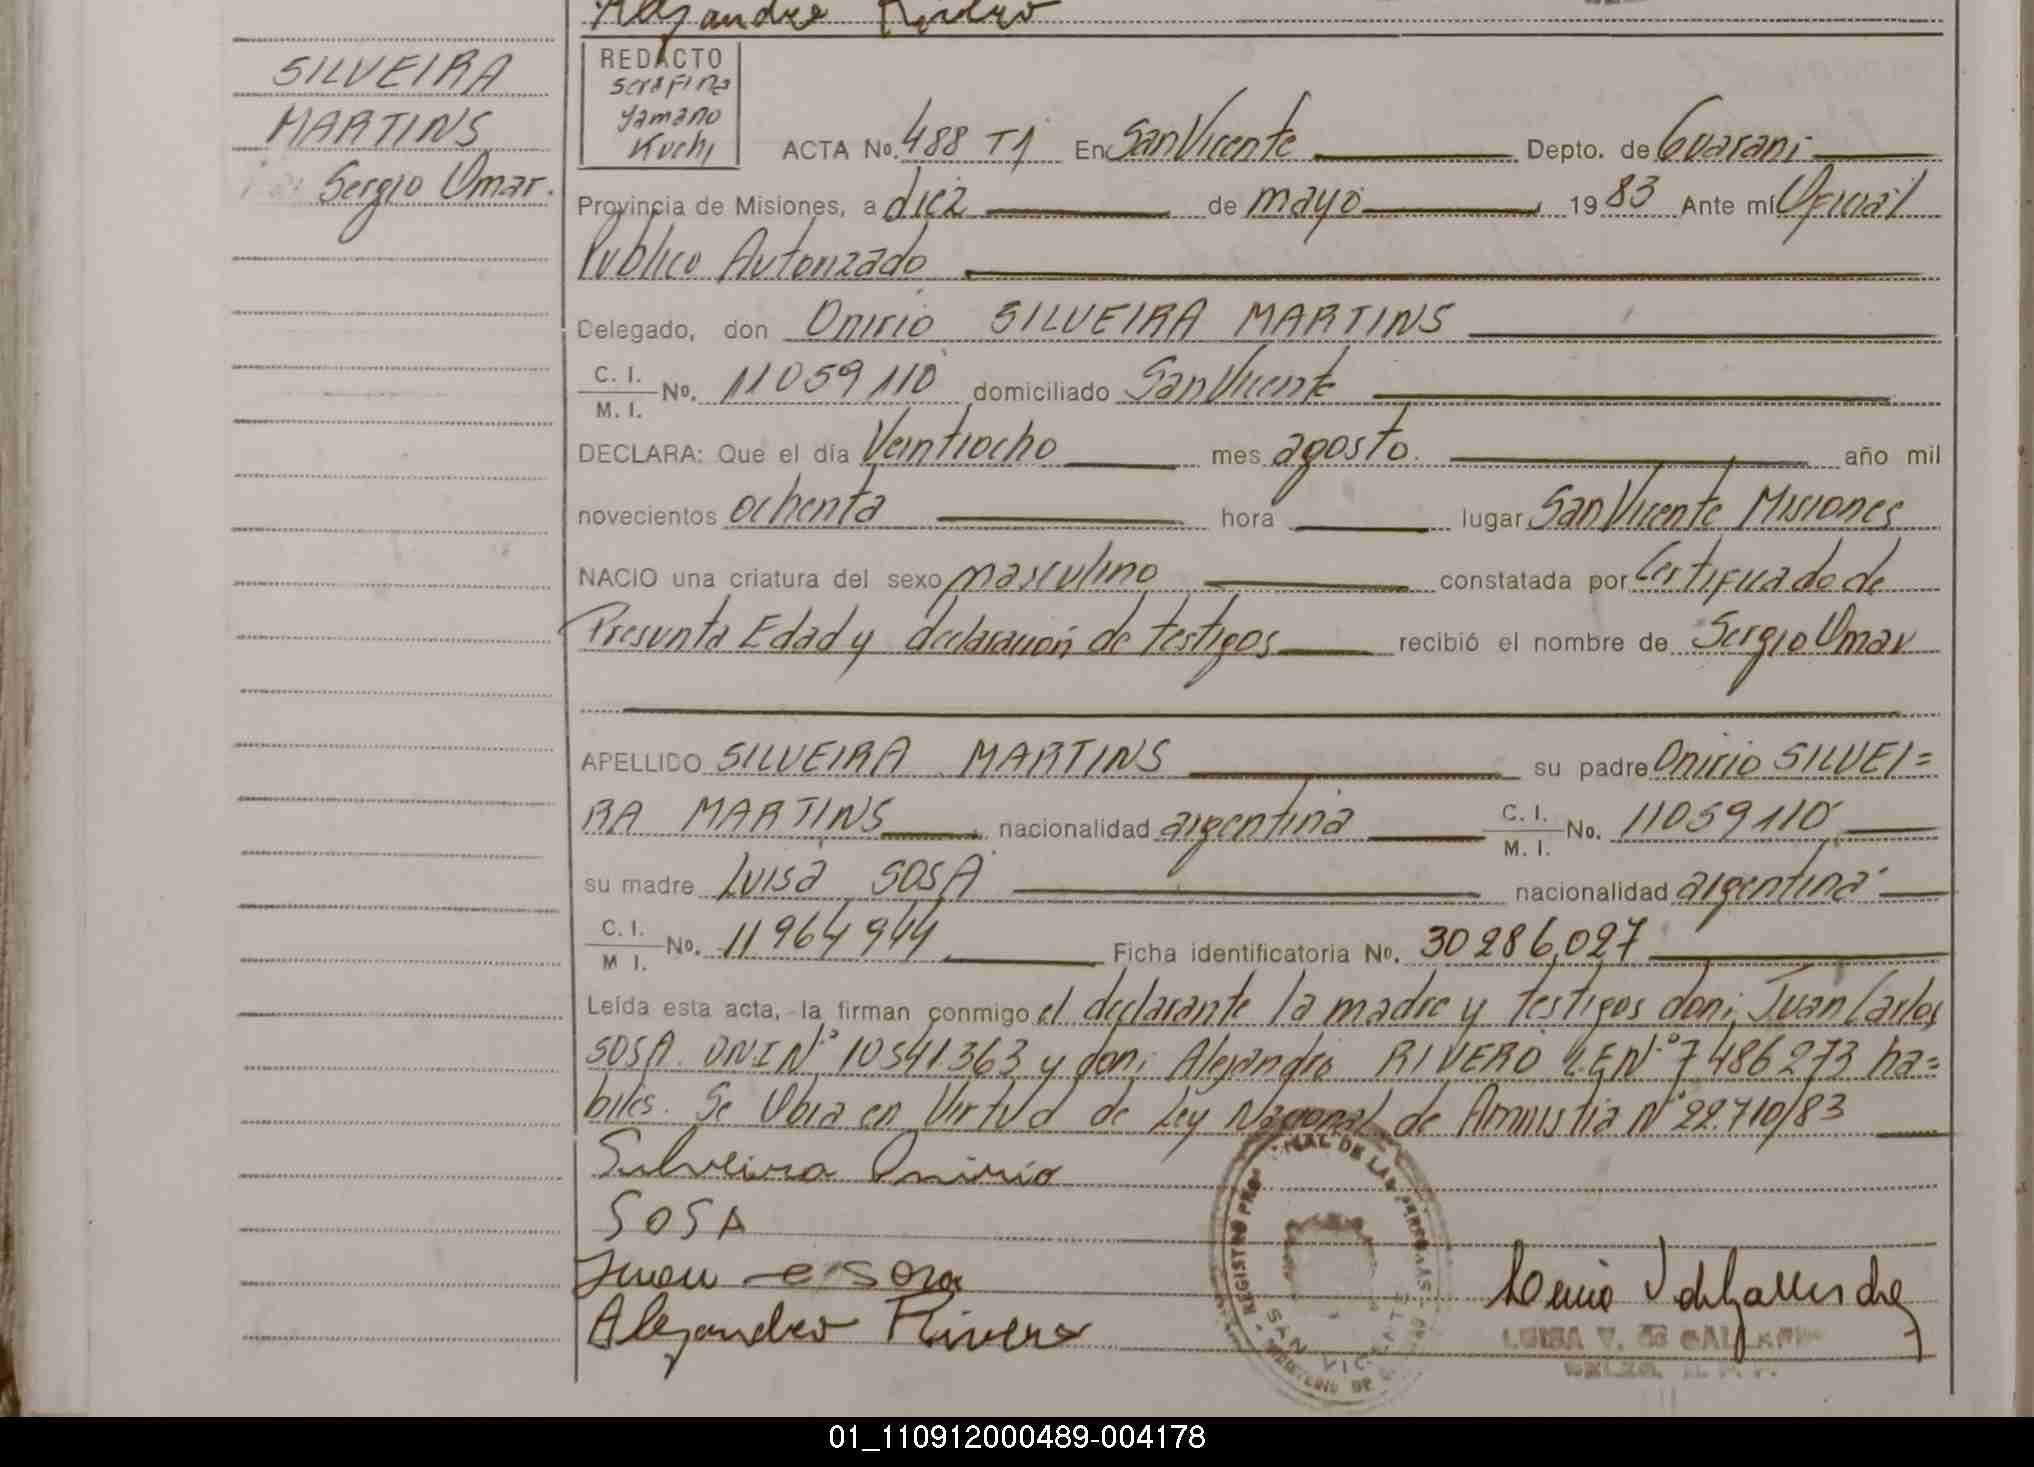 Alejandro Rivero
SILVEIRA
MARTINS
Sergio Omar.
REDACTO
Serafina
Yamano
Kuchi
ACTA No. 488 T1 En San Vicente Depto. de Guarani
Provincia de Misiones, a diez de mayo 1983 Ante mí Oficial
Publico Autorizado
Delegado, don Onirio SILVEIRA MARTINS
C. I. / M. I. No. 11059110 domiciliado San Vicente
DECLARA: Que el día Veintiocho mes agosto. año mil
novecientos ochenta hora lugar San Vicente Misiones
NACIO una criatura del sexo masculino constatada por Certificado de
Presunta Edad y declaración de testigos recibió el nombre de Sergio Omar
APELLIDO SILVEIRA MARTINS su padre Onirio SILVEI=
RA MARTINS nacionalidad argentina C. I. / M. I. No. 11059110
su madre Luisa SOSA nacionalidad argentina
C. I. / M I. No. 11964944 Ficha identificatoria No. 30286,027
Leída esta acta, la firman conmigo el declarante la madre y testigos don; Juan Carlos
SOSA. DNI N.º 10541.363 y don; Alejandro RIVERO L.E N.º 7486273 ha=
biles. Se Obra en Virtud de Ley Nacional de Amnistia Nº 22.710/83
Silveira Onirio
SOSA
Juan C Sosa
Alejandro Rivero
REGISTRO DE LAS PERSONAS
SAN VICENTE
LUISA V. de
01_110912000489-004178